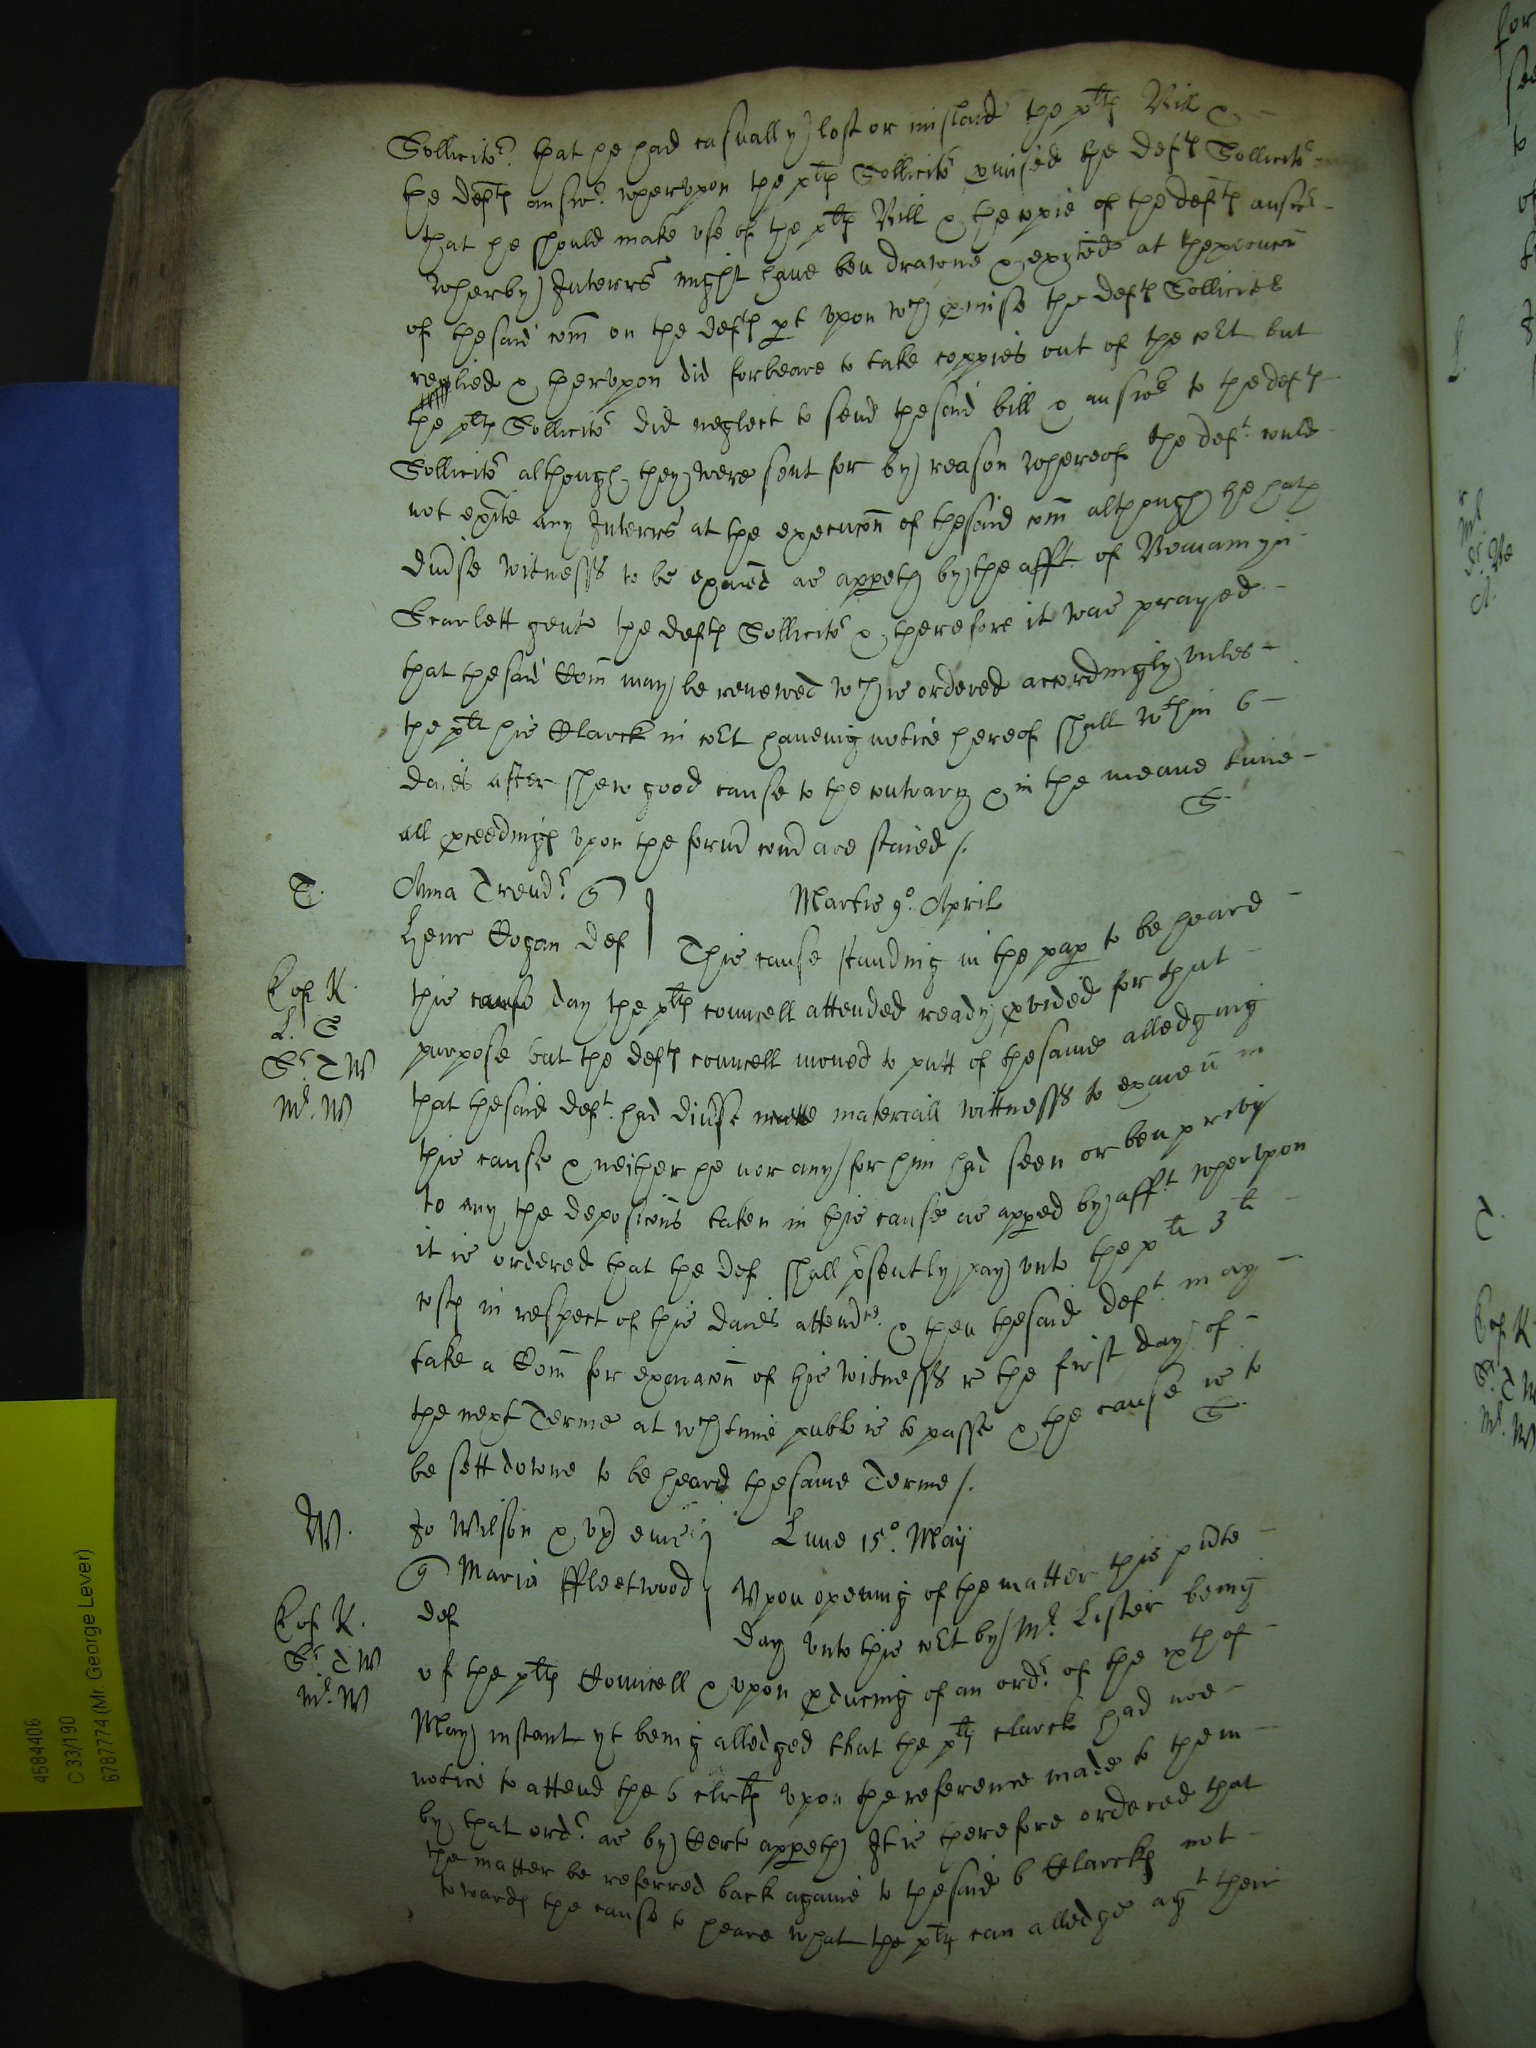 Sollicitor. that he had casually lost or mislaid the plts Bill &
the defts answr. wherupon the plts Sollicitor pmised the Defts Sollicitor
that he should make use of the plts Bill & the copie of the defts answr
Wherby Interrs might have ben drawne & exhited at the execucon
of the said com on the defts pt upon wch pmise the defts Sollicitor
relied & therupon did forbeare to take coppies out of the cort but
the plts Sollicitor did neglect to send the said bill & answer to the defts
Sollicitor although they were sent for by reason whereof the deft. could
not exhite any Interrs at the execucon of the said com although he hath
divrse witnesss to be exaied as appeth by the afft. of Beniamyn
Scarlett gent the defts Sollicitor & therefore it was prayed
that the said Com may be renewed wch is ordered accordingly unles
the plts his Clarck in cort haveing notice hereof shall wthin 6
daies after shew good cause to the contrary & in the meane time
all pceedings upon the formr comd are staied /.
T. Anna Trend.
Henr Cogan def
Martis 9o. April
This cause standing in the pap to be heard
Cof K. this day the plts councell attended ready pvided for that
L. S purpose but the defts councell moved to putt of the same alledging
Sr. T W that the said deft. had divrse materiall wittnesss to exaien in
Mr. W this cause & neither he nor any for him had seen or ben privy
to any the deposicons taken in this cause as apped by afft. wherupon
it is ordered that the def shall psently pay unto the plt 3 li
costs in respect of this daies attendce. & then the said deft. may
take a Com for exaiacon of his witnesss r the first day of
the next Terme at wch time publi is to passe & the cause is to
be sett downe to be heard the same Terme /.
W. Jo Wilson & ux
Lune 15o. May
Maria Ffleetwood
def
Upon opening of the matter this pnte
day unto this cort by Mr. Lister being
Cof K. of the plts Councell & upon pducing of an ordr. of the ixth of
Sr. T W May instant yt being alledged that the plts clarck had noe
Mr. W notice to attend the 6 clrks upon the reference made to them
by that ordr. as by Cert appeth It is therefore ordered that
the matter be referred back againe to the said 6 Clarcks not
towards the cause to heare what the plts can alledge agt their
4584406
C 33/190
6787774 (Mr. George Lever)